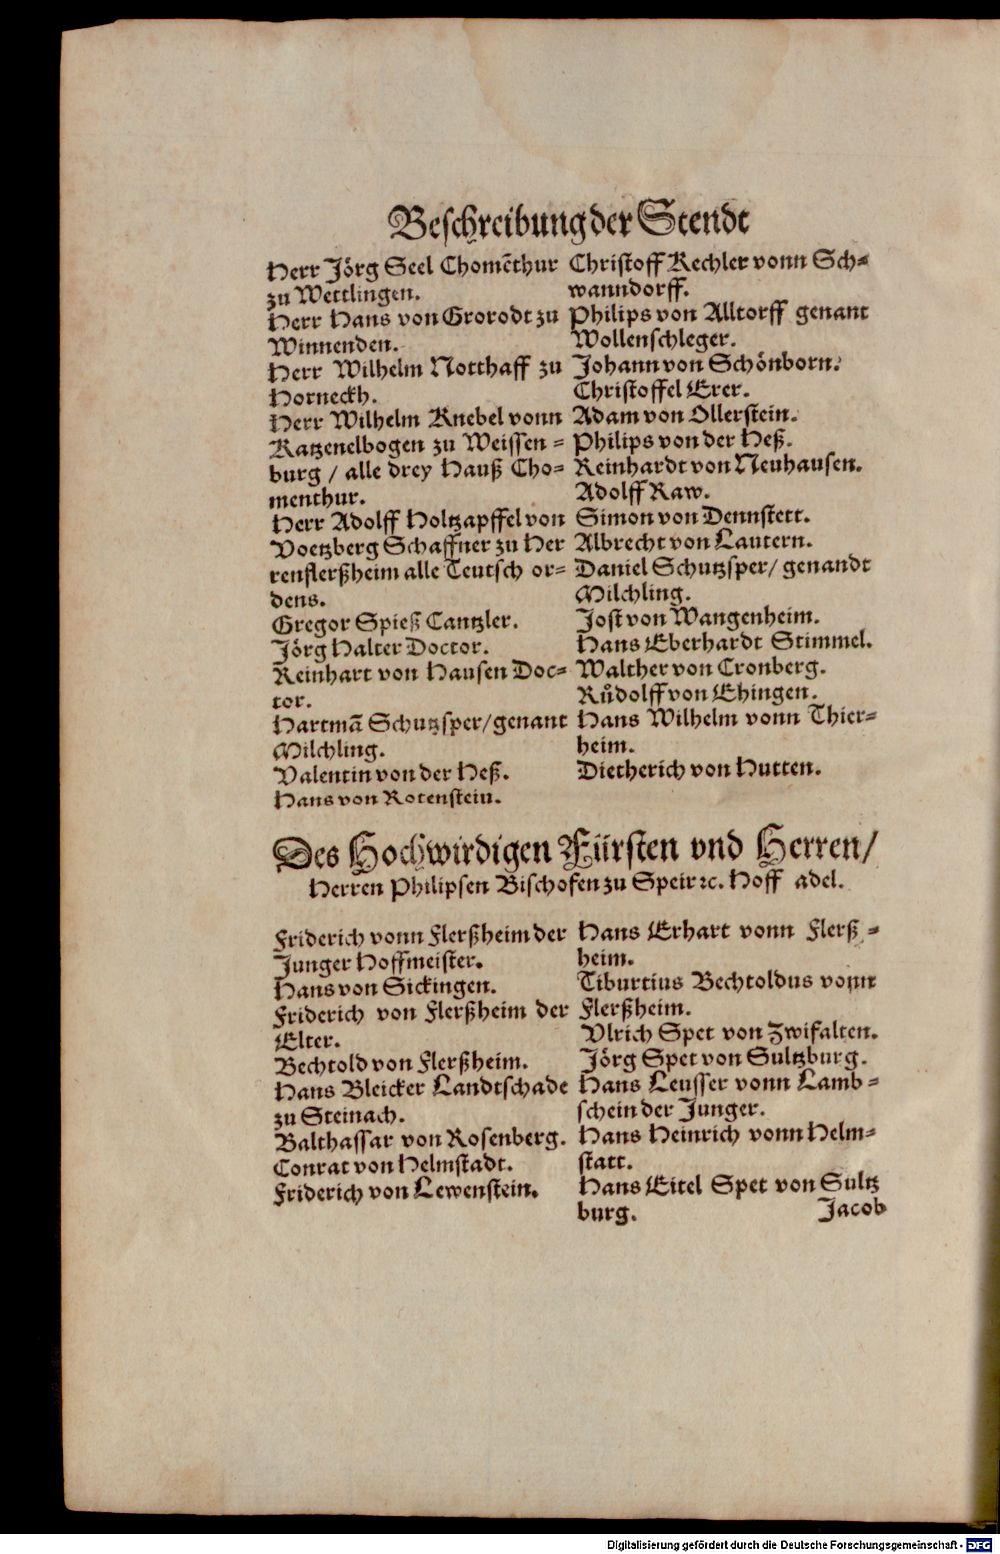 Beschreibung der Stendt
Herr Jörg Seel Chomẽthur
zu Wettlingen.
Herr Hans von Grorodt zu
Winnenden.
Herr Wilhelm Notthaff zu
Horneckh.
Herr Wilhelm Knebel vonn
Katzenelbogen zu Weissen-
burg / alle drey Hauß Cho-
menthur.
Herr Adolff Holtzapffel von
Voetzberg Schaffner zu Her
renflerßheim alle Teutsch or-
dens.
Gregor Spieß Cantzler.
Jörg Halter Doctor.
Reinhart von Hausen Doc-
tor.
Hartmã Schutzsper/genant
Milchling.
Valentin von der Heß.
Hans von Rotenstein.
Christoff Kechler vonn Sch-
wanndorff.
Philips von Alltorff genant
Wollenschleger.
Johann von Schönborn.
Christoffel Erer.
Adam von Ollerstein.
Philips von der Heß.
Reinhardt von Neuhausen.
Adolff Raw.
Simon von Dennstett.
Albrecht von Lautern.
Daniel Schutzsper/ genandt
Milchling.
Jost von Wangenheim.
Hans Eberhardt Stimmel.
Walther von Cronberg.
Růdolff von Ehingen.
Hans Wilhelm vonn Thier-
heim.
Dietherich von Hutten.
Des Hochwirdigen Fürsten vnd Herren/
Herren Philipsen Bischofen zu Speir ꝛc. Hoff adel.
Friderich vonn Flerßheim der
Junger Hoffmeister.
Hans von Sickingen.
Friderich von Flerßheim der
Elter.
Bechtold von Flerßheim.
Hans Bleicker Landtschade
zu Steinach.
Balthassar von Rosenberg.
Conrat von Helmstadt.
Friderich von Lewenstein.
Hans Erhart vonn Flerß-
heim.
Tiburtius Bechtoldus vonn
Flerßheim.
Vlrich Spet von Zwifalten.
Jörg Spet von Sultzburg.
Hans Leusser vonn Lamb-
schein der Junger.
Hans Heinrich vonn Helm-
statt.
Hans Eitel Spet von Sultz
burg.
Jacob
Digitalisierung gefördert durch die Deutsche Forschungsgemeinschaft - DFG